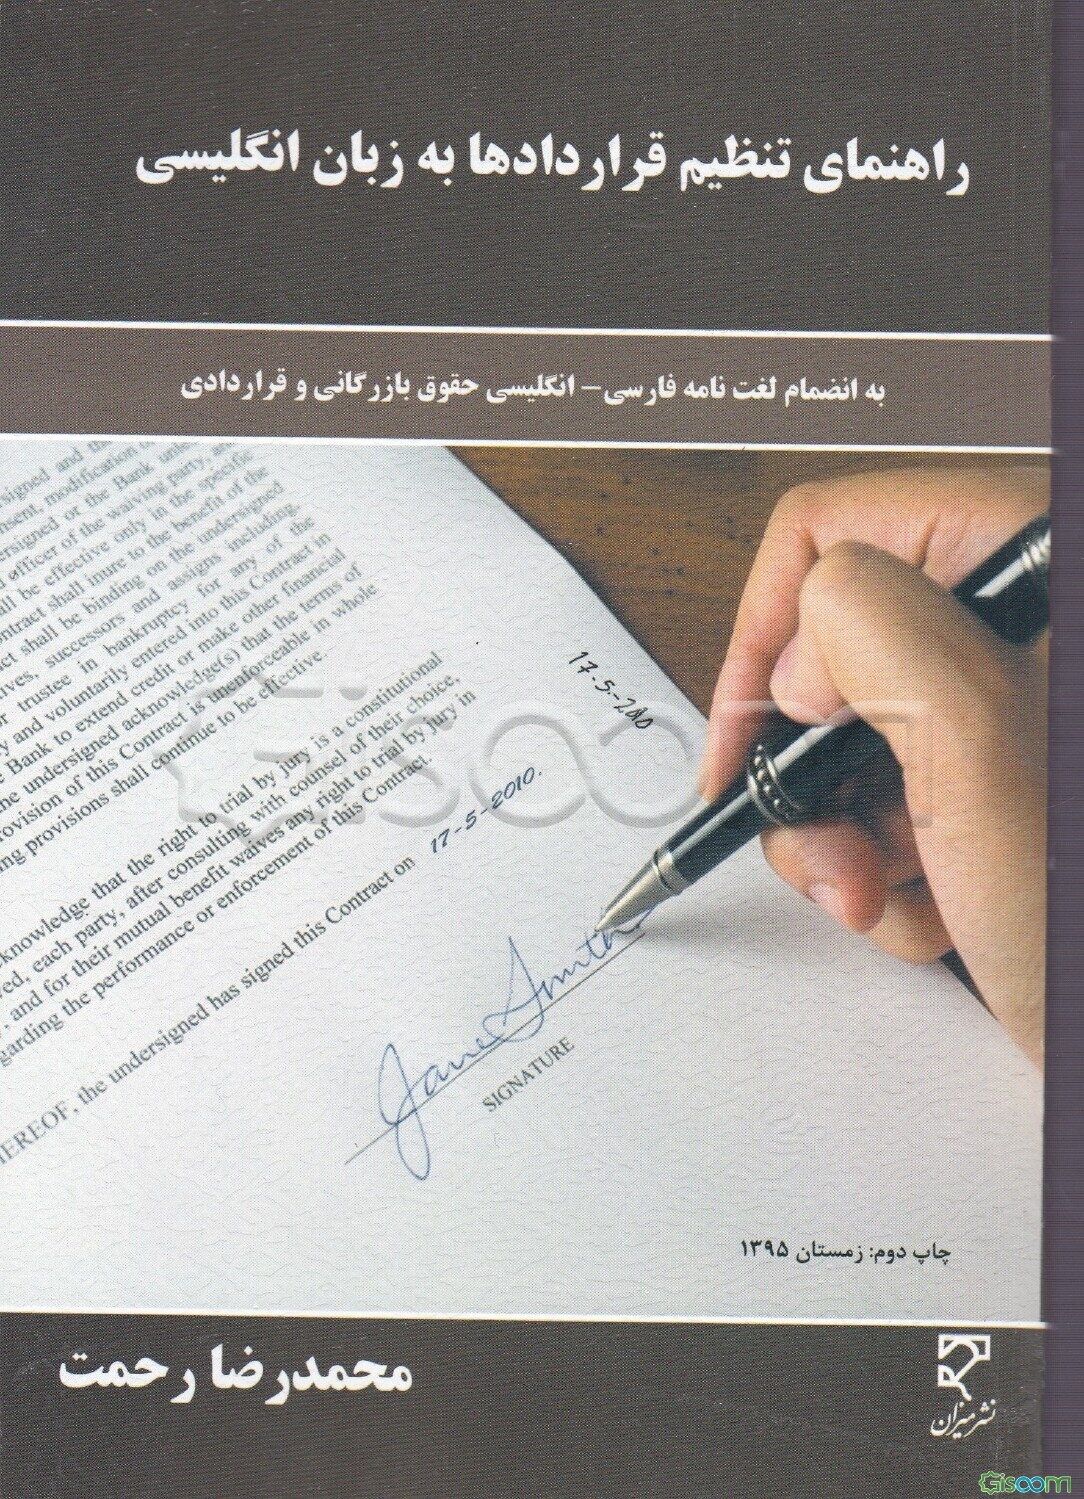 راهنمای تنظیم قراردادها به زبان انگلیسی
به انضمام لغت نامه فارسی - انگلیسی حقوق بازرگانی و قراردادی
signed and the
nsent, modification
ersigned or the Bank unless
d officer of the waiving party, and
all be effective only in the specific
ontract shall inure to the benefit of the
act shall be binding on the undersigned
ives, successors and assigns including,
or trustee in bankruptcy for any of the
y and voluntarily entered into this Contract in
e Bank to extend credit or make other financial
he undersigned acknowledge(s) that the terms of
rovision of this Contract is unenforceable in whole
ng provisions shall continue to be effective.
knowledge that the right to trial by jury is a constitutional
ved, each party, after consulting with counsel of their choice,
, and for their mutual benefit waives any right to trial by jury in
garding the performance or enforcement of this Contract.
HEREOF, the undersigned has signed this Contract on 17-5-2010.
17-5-2010
Jane Smith
SIGNATURE
Gisoom
چاپ دوم: زمستان ۱۳۹۵
محمدرضا رحمت
نشر میزان
Gisoom